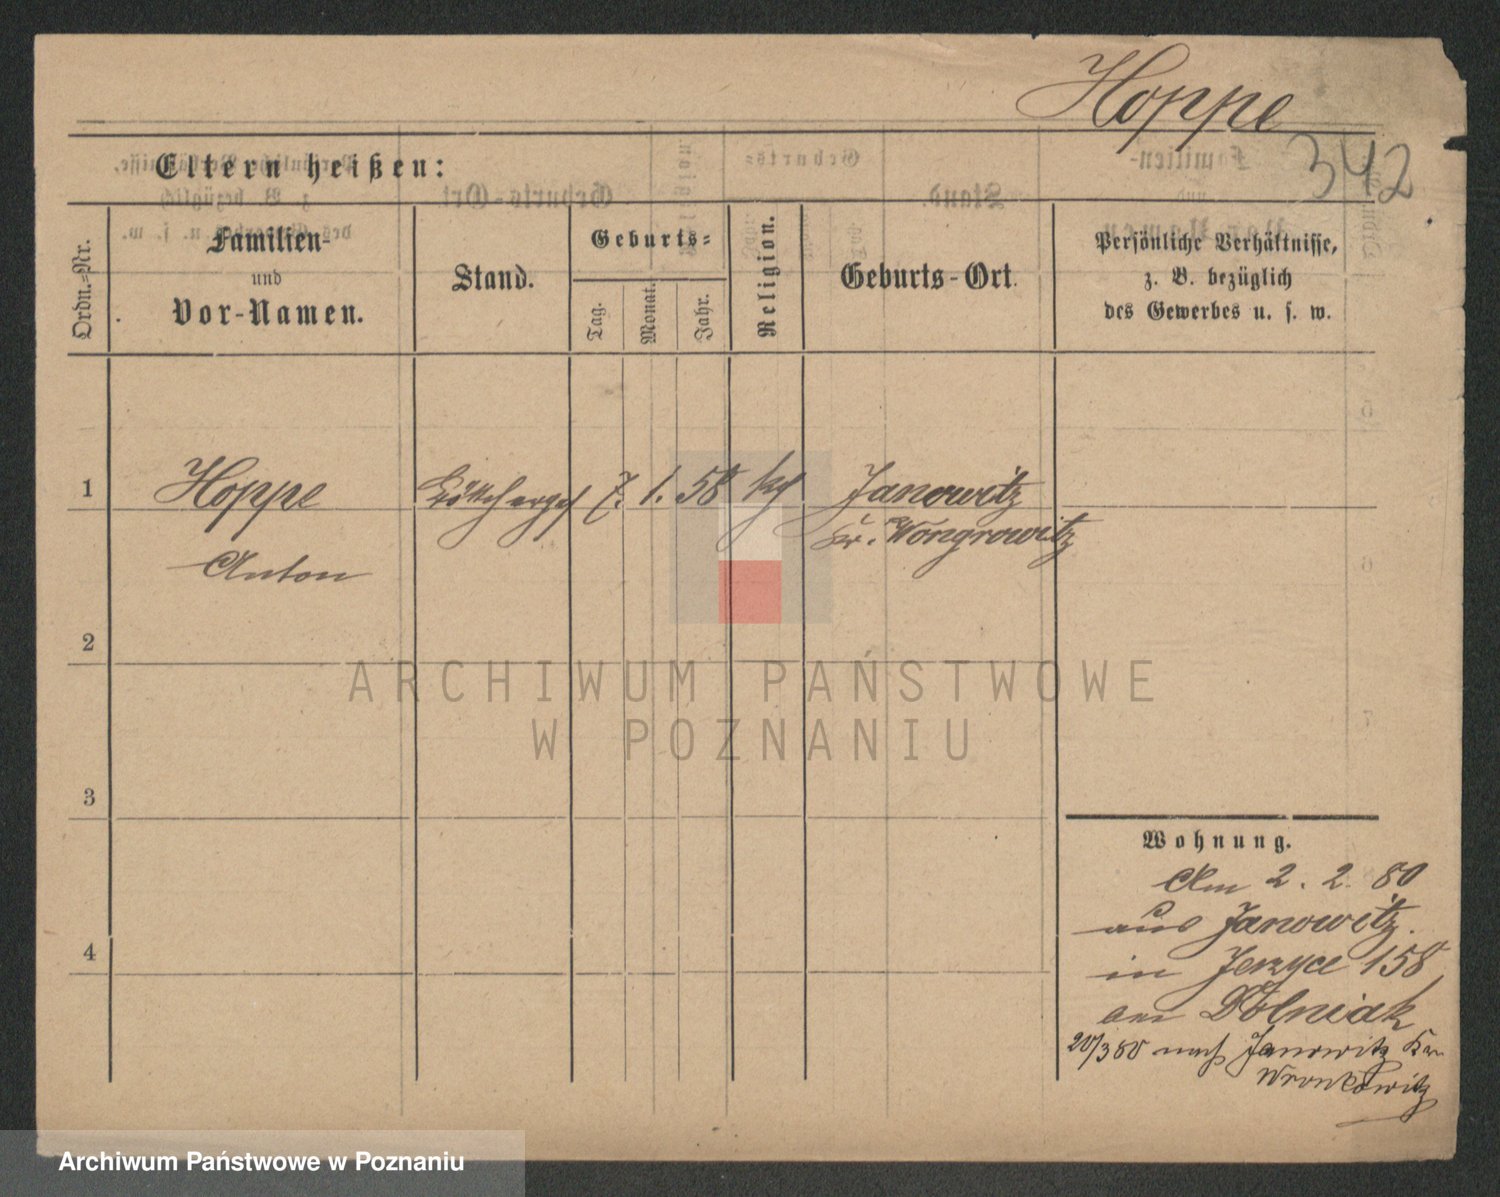 Hoppe
342
Eltern heißen:
Ordn.-Nr.
Familien-
und
Vor-Namen.
Stand.
Geburts-
Tag.
Monat.
Jahr.
Religion.
Geburts-Ort.
Persönliche Verhältnisse,
z. B. bezüglich
des Gewerbes u. s. w.
1 Hoppe Böttcherges 7. 1. 58 kth Janowitz
Kr. Wongrowitz
Anton
2
3
4
Wohnung.
Am 2. 2. 80
aus Janowitz.
in Jerzyce 158
Wolniak
20/3 80 nach Janowitz Kr.
Wronkowitz
ARCHIWUM PAŃSTWOWE
W POZNANIU
Archiwum Państwowe w Poznaniu